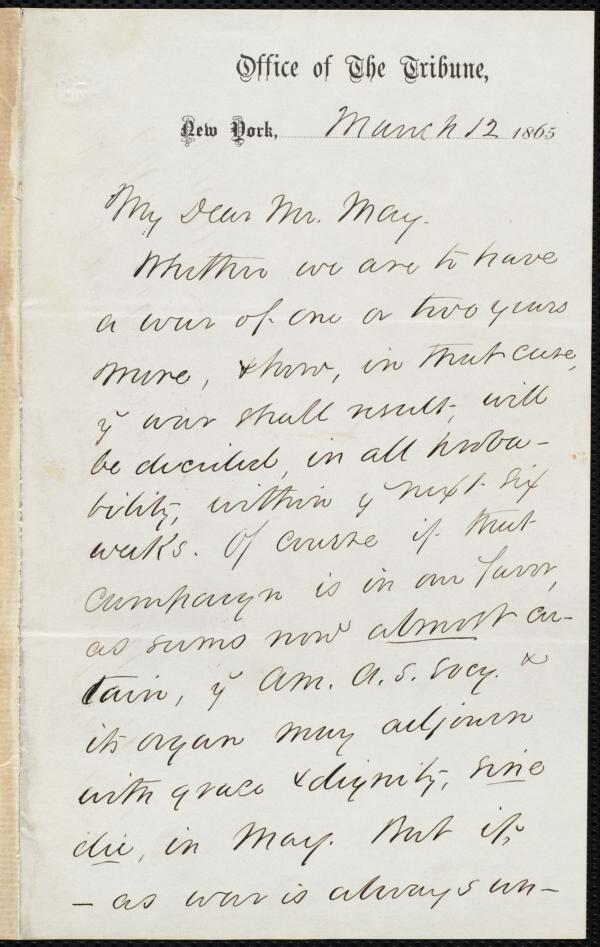 Office of The Tribune,
New York, March 12 1865
My Dear Mr. May.
Whether we are to have
a war of one or two years
more, & how, in that case,
ye war shall result, will
be decided, in all proba-
bility, within ye next six
weeks. Of course if that
campaign is in our favor,
as seems now almost cer-
tain, ye Am. A. S. Socy. &
its organ may adjourn
with grace & dignity, sine
die, in May. But if,
- as war is always un-